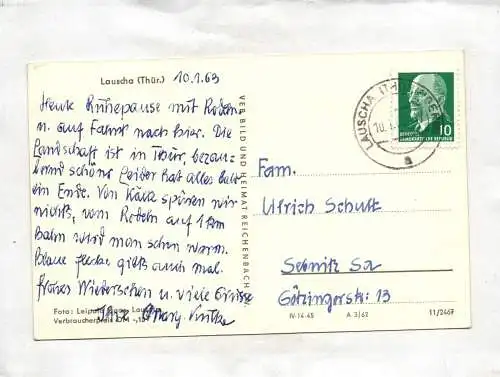 Lauscha (Thür.) 10.1.63
Heute Ruhepause mit Rodeln
u. auf Fahrt nach hier. Die
Landschaft ist in Thür. bezau-
bernd schön. Leider hat alles bald
ein Ende. Von Kälte spüren wir
nichts, vom Rodeln auf 1 km
Bahn wird man schon warm.
Blaue flecke gibts auch mal.
frohes Wiedersehen u. viele Grüsse
Ihre
Foto: Leipold
Verbraucherpreis
VERBILD UND HEIMAT REICHENBACH
LAUSCHA (THÜR
10
DEUTSCHE DEMOKRATISCHE REPUBLIK
a
Fam.
Ulrich Schulz
Sebnitz Sa
Götzingerstr. 13
IV-14-45 A 3/62 11/2467